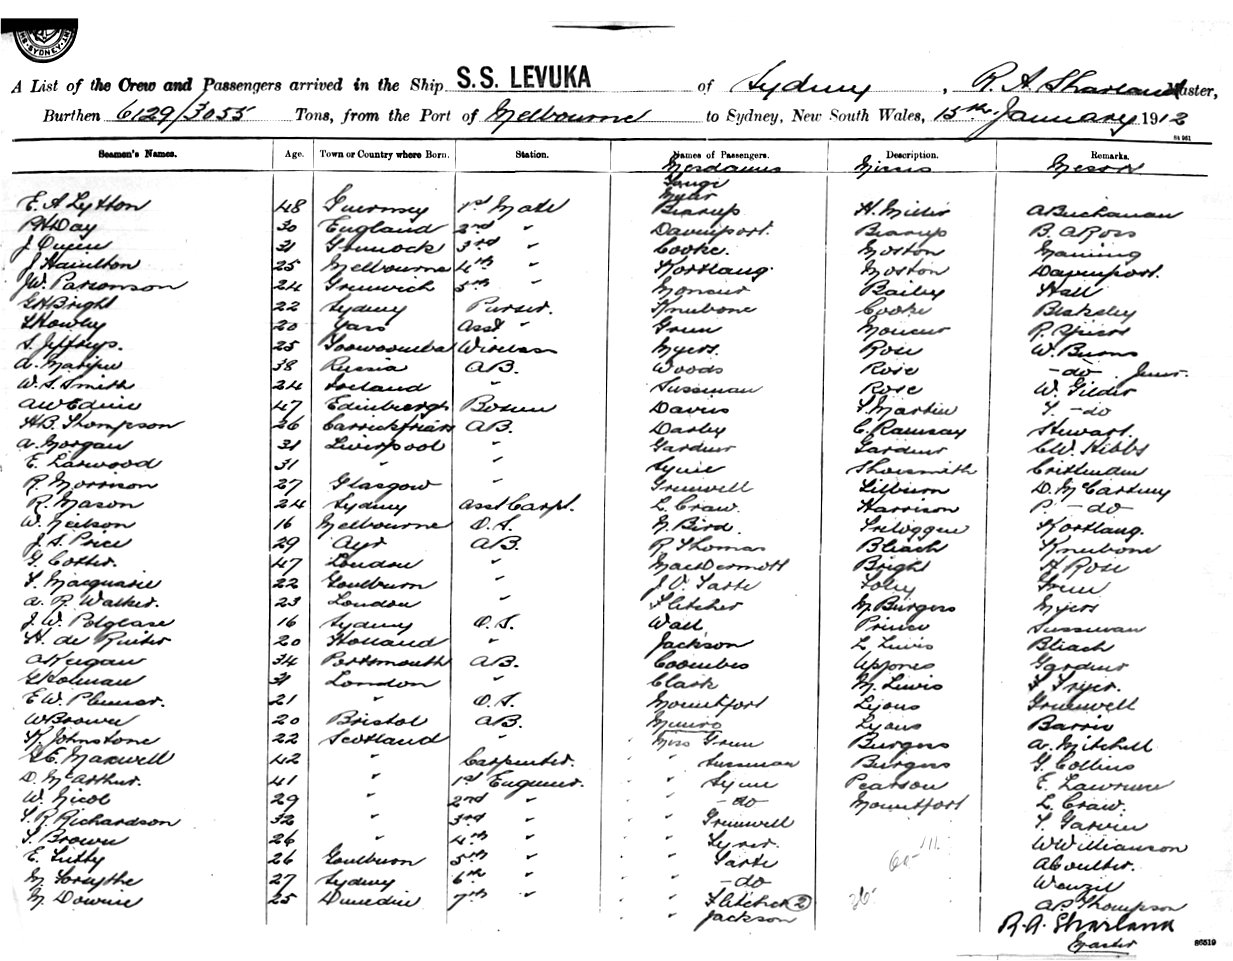 SYDNEY
A List of the Crew and Passengers arrived in the Ship S.S. LEVUKA of Sydney, R. A. Sharland Master,
Burthen 6129/3055 Tons, from the Port of Melbourne to Sydney, New South Wales, 15th January 1912
Seamen's Names. Age. Town or Country where Born. Station. Names of Passengers. Description. Remarks.
Mesdames Misses Messrs
E. A. Lytton 48 Guernsey 1st Mate Bearup H. Miller A Buchanan
P H Day 30 England 2nd " Davenport. Bearup B. A Ross
31 Greenock 3rd " Cooke. Moston Manning
J Hamilton 25 Melbourne 4th " Kortlang. Moston Davenport.
J W. Parsonson 24 Greenwich 5th " Moncur Bailey Hall
G H Bright 22 Sydney Purser. Knubone Cooke Blakeley
20 Yass Asst " Green Moncur R.
S. Jeffreys. 25 Toowoomba Wireless Myers. Rose W. Burns
38 Russia A.B. Woods Rose - do - Junr.
W. S. Smith 24 Ireland " Sussman Rose W. Gilder
A W Edine 47 Edinburgh Bosun Davies S Martin T. - do
H. B. Thompson 26 Carrickfriars A.B. Darby C. Ramsay Stewart.
A. Morgan 31 Liverpool " Gardner Gardner C W. Hibbs
E. Larwood 31 " " Lyne Shoesmith Crittenden
R. Morrison 27 Glasgow " Greenwell Lilburn D. McCartney
R. Mason 24 Sydney Asst Carpt. L. Craw. Harrison P. - do
W. Neilson 16 Melbourne O.S. M. Bird. Treloggen Kortlang.
J. S. Price 29 Ayr A.B. R Thomas Bleach Knubone
G. Cotter. 47 London " MacDermott Bright H Rose
T. Macquarie 22 Goulburn " J. O. Taste Foley Green
A. R. Walker. 23 London " Fletcher M. Burgess Myers
J. W. Polglase 16 Sydney O.S. Wall Prince Sussman
H. de Ruiter 20 Holland " Jackson L Lewis Bleach
A Keegan 34 Portsmouth A.B. Coombes Upjones Gardner
G Holman 31 London " Clark M. Lewis F Fryer.
E W. Plummer. 21 " O.S. Mountfort Lyons Greenwell
W Brown 20 Bristol A.B. Munro Lyons Barrie
K Johnstone 22 Scotland " Miss Green Burgess A. Mitchell
G E. Maxwell 42 " Carpenter. " Sussman Burgess G. Collins
D. McArthur. 41 " 1st Engineer. " Lyne Pearson E. Lawrence
W. Nicol 29 " 2nd " " - do Mountfort L. Craw.
T. R. Richardson 32 " 3rd " " Greenwell T. Garvin
T. Brown 26 " 4th " " W Williamson
E. Tutty 26 Goulburn 5th " " Taste A Coulter.
M Forsythe 27 Sydney 6th " " - do Wenzel
M. Downie 25 Dunedin 7th " " Fletcher (2) A P Thompson
" Jackson
R. A. Sharland
Master
86519